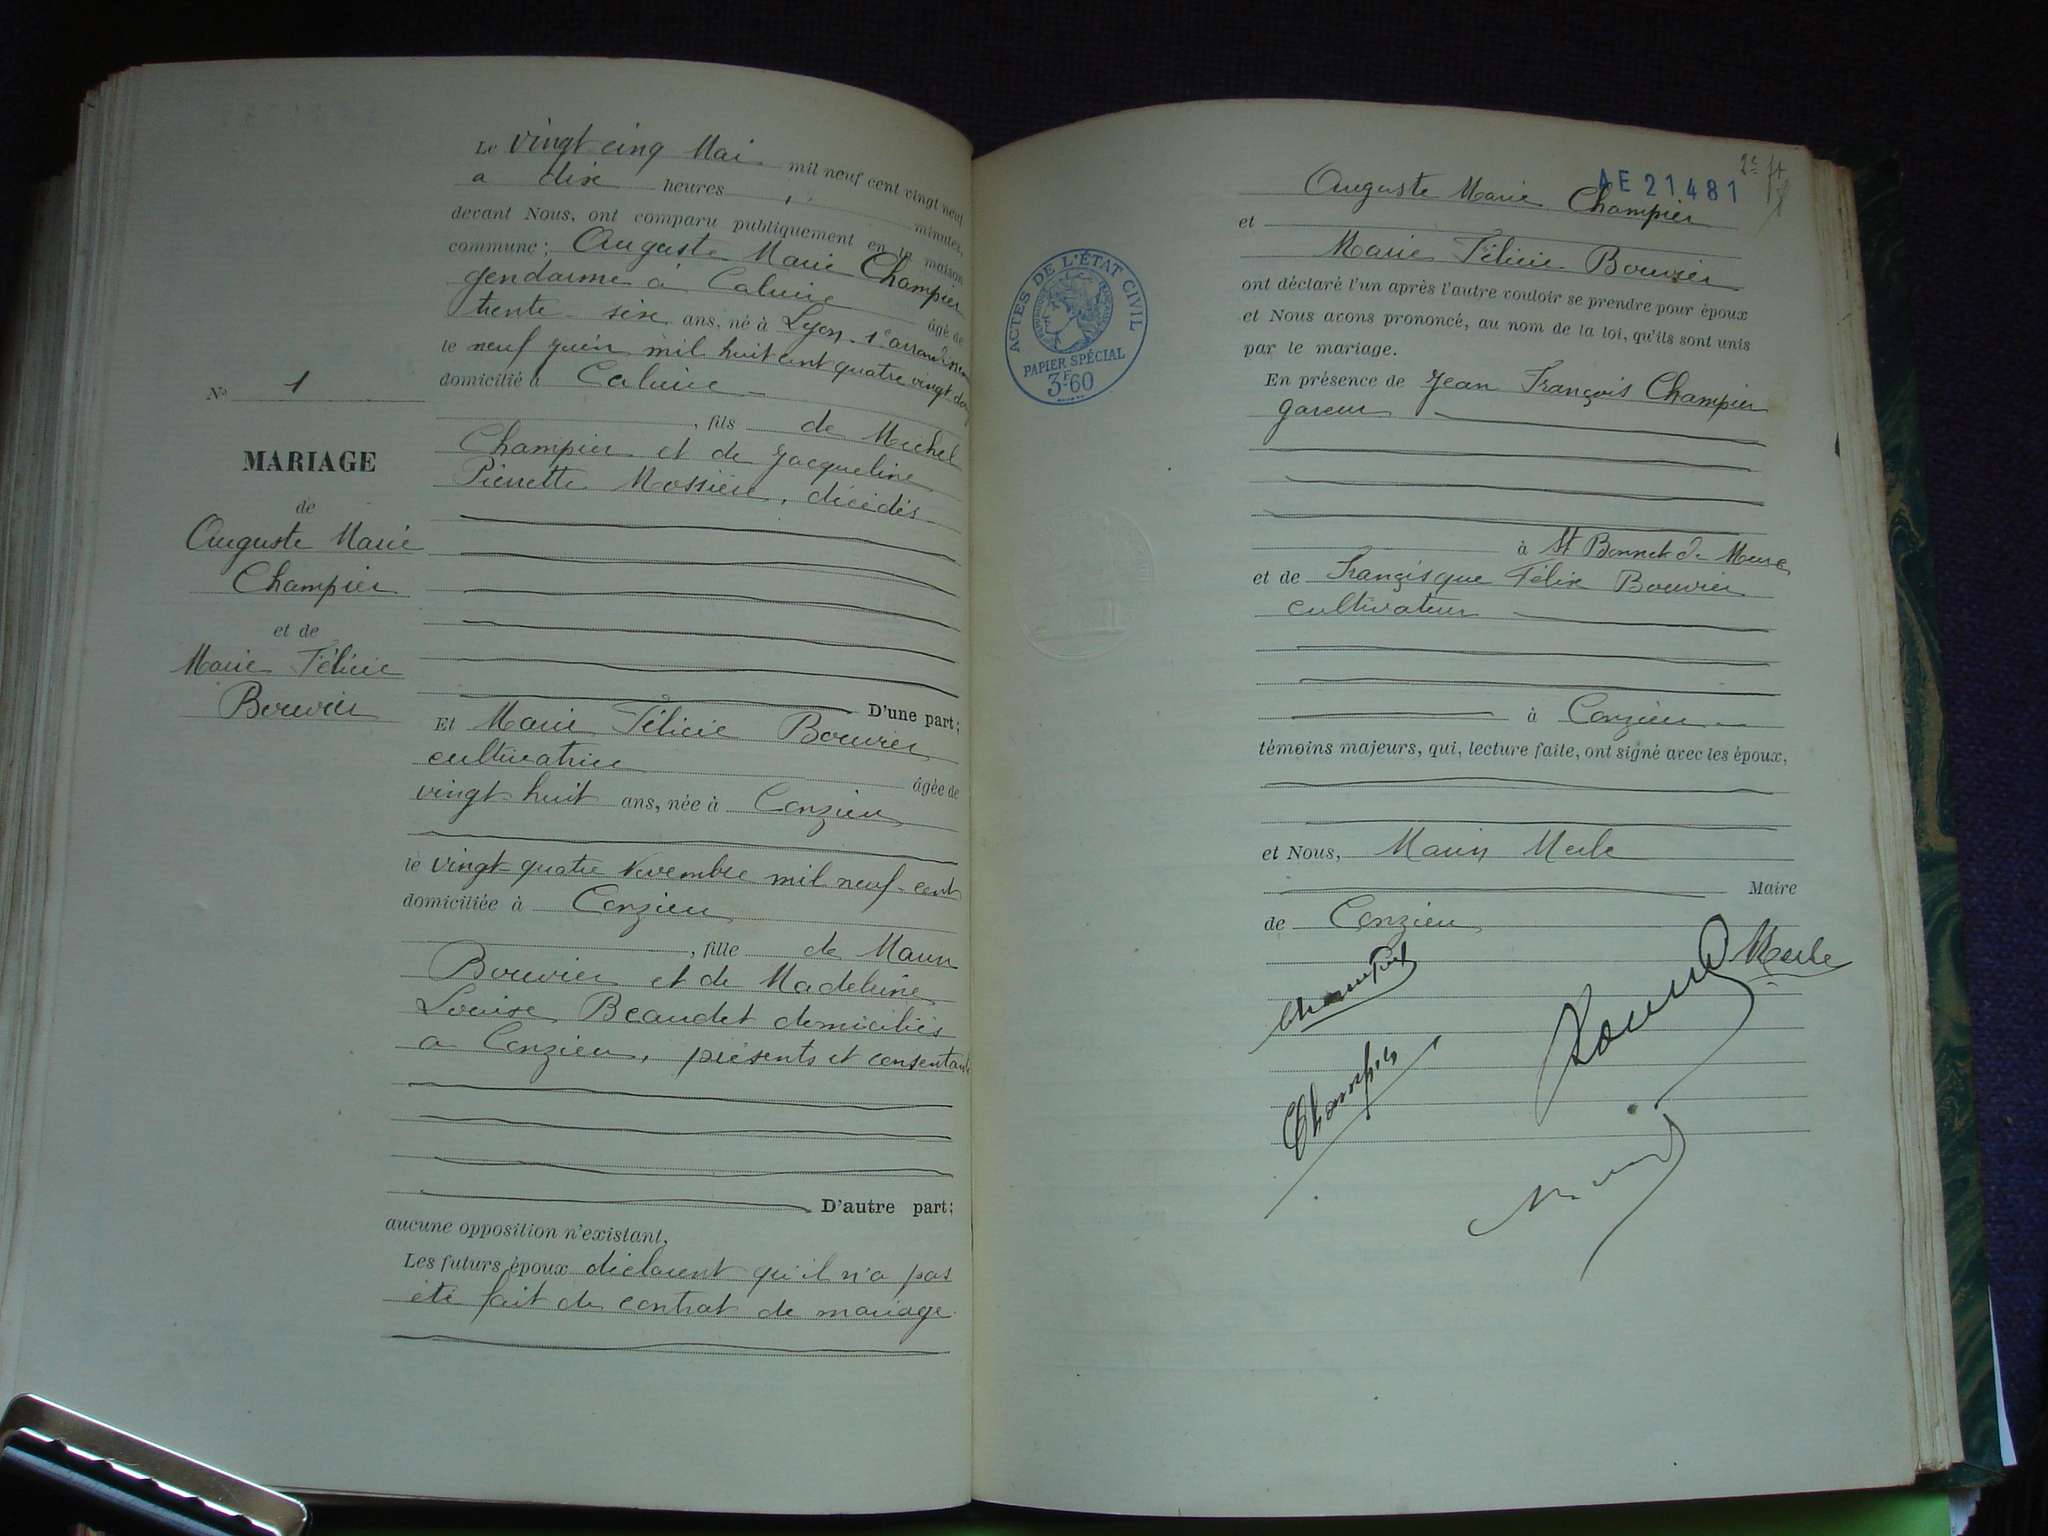 N° 1
MARIAGE
de
Auguste Marie
Champier
et de
Marie Félicie
Bouvier
Le vingt cinq Mai mil neuf cent vingt neuf
a dix heures, minutes,
devant Nous, ont comparu publiquement en la maison
commune: Auguste Marie Champier
gendarme à Caluire âgé de
trente-six ans, né à Lyon 1e arrondissem
le neuf juin mil huit cent quatre vingt
domicilié à Caluire
, fils de Michel
Champier et de Jacqueline
Pierrette Mossière, décédés
D'une part;
Et Marie Félicie Bouvier
cultivatrice âgée de
vingt huit ans, née à Conzieu
le vingt-quatre Novembre mil neuf-cent
domiciliée à Conzieu
, fille de Marin
Bouvier et de Madeleine
Louise Beaudet domiciliés
a Conzieu, présents et consentants
D'autre part;
aucune opposition n'existant,
Les futurs époux déclarent qu'il n'a pas
été fait de contrat de mariage.
AE 21481
Auguste Marie Champier
et
Marie Félicie Bouvier
ont déclaré l'un après l'autre vouloir se prendre pour époux
et Nous avons prononcé, au nom de la loi, qu'ils sont unis
par le mariage.
ACTES DE L'ÉTAT CIVIL
PAPIER SPÉCIAL
3F60
En présence de Jean François Champier
gareur
à St Bonnet de Mure
et de Françisque Félix Bouvier
cultivateur
à Conzieu
témoins majeurs, qui, lecture faite, ont signé avec les époux,
et Nous, Marin Merle
Maire
de Conzieu
Champier
Merle
Champier